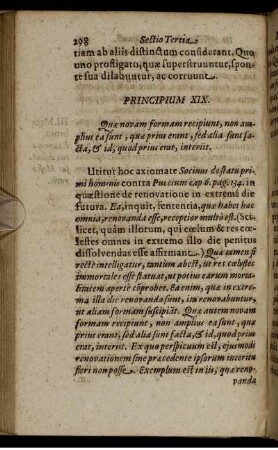 298 Sectio Tertia
tiam ab aliis distinctum considerant. Quo
uno profligato, quæ superstruuntur, spon-
te sua dilabuntur, ac corruunt.
PRINCIPIUM XIX.
Quæ novam formam recipiunt, non am-
plius ea sunt, quæ prius erant, sed alia sunt fa-
cta, & id, quod prius erat, interiit.
Utitur hoc axiomate Socinus de statu pri-
mi hominis contra Puccium cap. 6. pag. 134. in
quæstione de renovatione in extremo die
futura. Ea, inquit, sententia, quæ habet hæc
omnia, renovanda esse, receptior multò est. (Sci-
licet, quàm illorum, qui cœlum & res cœ-
lestes omnes in extremo illo die penitus
dissolvendas esse affirmant.) Quæ tamen si
rectè intelligatur, tantùm abest, ut res cœlestes
immortales esse statuat, ut potius earum morta-
bilitatem apertè cōprobet. Ea enim, quæ in extre-
ma illa die renovanda sunt, ita renovabuntur,
ut aliam formam suscipiāt. Quæ autem novam
formam recipiunt, non amplius ea sunt, quæ
prius erant; sed alia sunt facta, & id, quod prius
erat, interiit. Ex quo perspicuum est, ejusmodi
renovationem sine præcedente ipsorum interitu
fieri non posse. Exemplum est in iis, quæ reno-
vanda